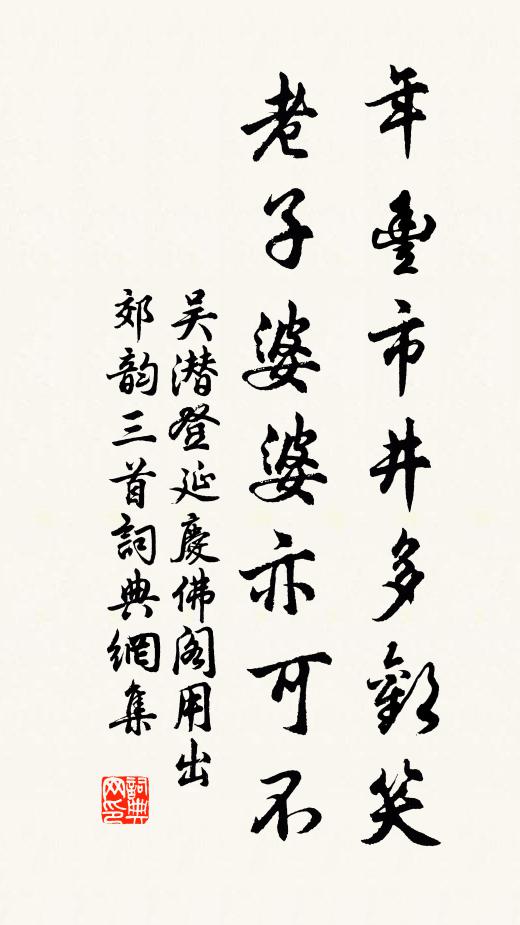 年豐市井多歡笑
老子婆婆亦可不
吳潛登延慶佛閣用出
郊韵三首詞典網集
詞典
网印